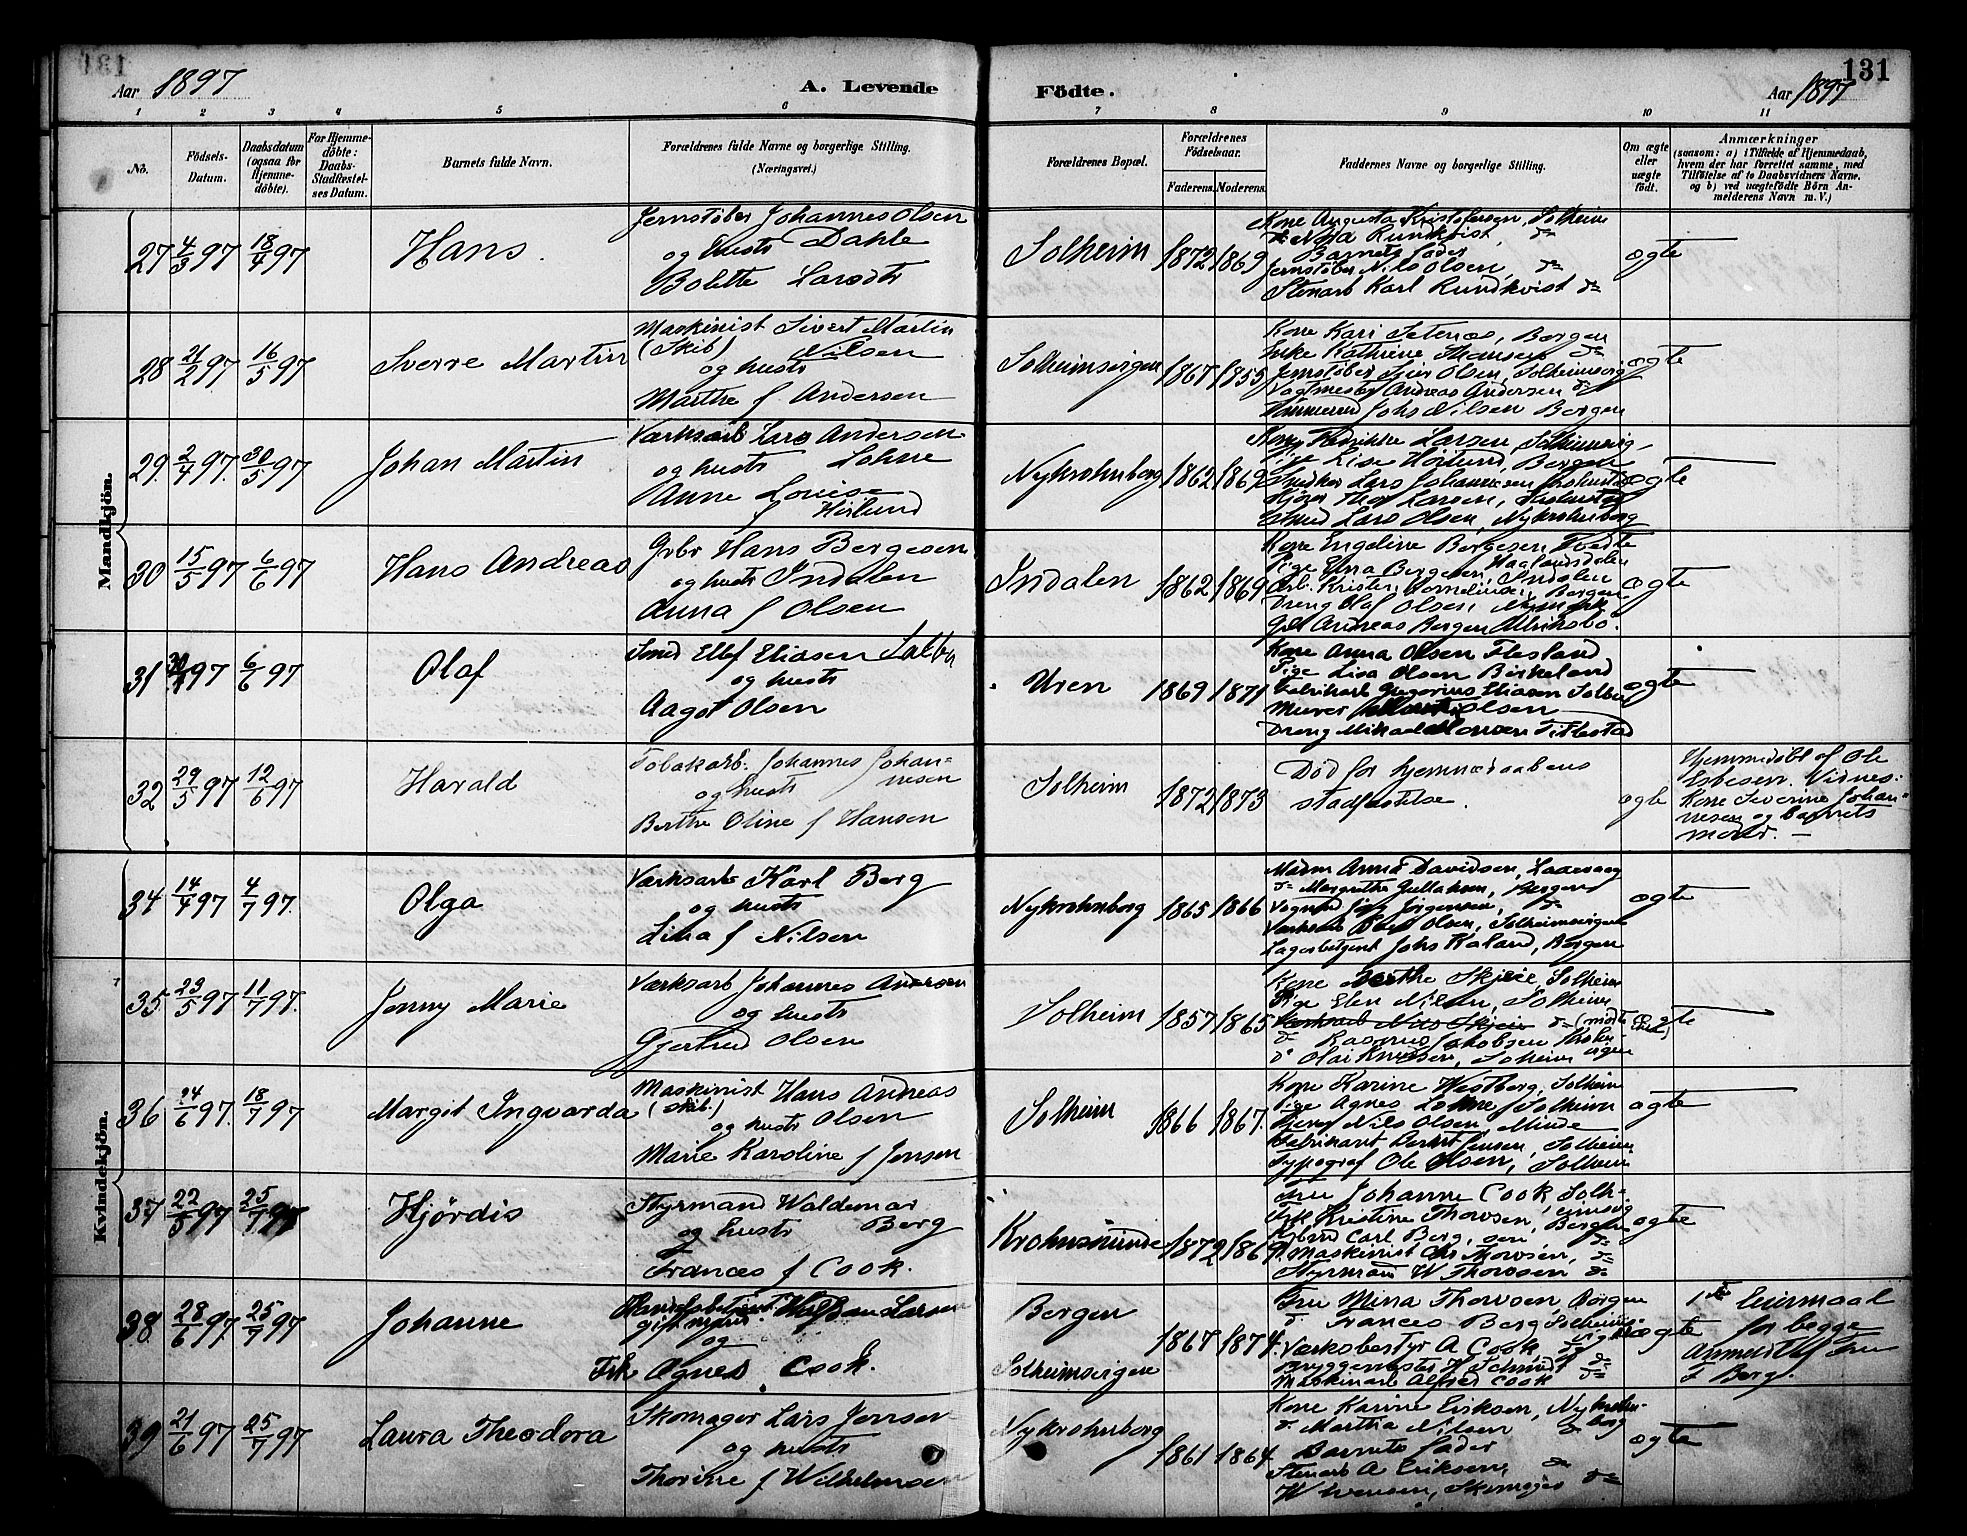 Aar 1897
A. Levende
Födte.
131
Aar 1897
1 2 3 4 5 6 7 8 9 10 11
No.
Födsels-
Datum.
Daabsdatum
(ogsaa for
Hjemme-
döbte).
For Hjemme-
döbte:
Daabs-
Stadfæstel-
ses Datum.
Barnets fulde Navn.
Forældrenes fulde Navne og borgerlige Stilling.
(Næringsvei.)
Forældrenes Bopæl.
Forældrenes
Födselsaar.
Faderens. Moderens.
Faddernes Navne og borgerlige Stilling.
Om ægte
eller
uægte
födt.
Anmærkninger
(saasom: a) i Tilfælde af Hjemmedaab,
hvem der har forrettet samme, med
Tilföielse af to Daabsvidners Navne.
og b) ved uægtefödte Börn An-
melderens Navn m. V.)
Mandkjön.
27 4/3 97 18/4 97
Hans.
Jernstöber Johannes Olsen
Dahle
og hustr
Bolette Larsdtr
Solheim
1872 1869
Kone Augusta Kristofersen, Solheim
Rundkvist, do
Barnets fader
Jernstöber Nils Olsen, do
Stenarb Karl Rundkvist do
ægte
28 21/2 97 16/5 97
Sverre Martin
Maskinist Sivert Martin
(Skib) Nilsen
og hustr
Marthe f Andersen
Solheimsvigen
1867 1855
Kone Kari Setenes, Bergen
Enke Kathrine Hansen do
Jernstöber Siver Olsen, Solheimsvig
Vagtmester Andreas Andersen do
Tömmermd Johs Nilsen Bergen
ægte
29. 2/4 97. 30/5 97
Johan Martin
Værksarb Lars Andersen
Lohne
og hustr
Anne Louise
f Hörlund
Nykrohnborg
1862 1869
Kone Fredrikke Larsen, Solheimsvig
Pige Lise Hörlund, Bergen
Snedker Lars Johannesen
Thos Larsen,
Smed Lars Olsen, Nykrohnborg
ægte
30 15/5 97 6/6 97
Hans Andreas
Gbr Hans Bergesen
og hustr Indalen
Anna f Olsen
Indalen
1862 1869
Kone Engeline Bergesen Tvedte
Pige Elna Bergesen, Haalandsdalen
Arb. Kristen Kornelius, Indalen Bergen
Dreng Olaf Olsen,
Andreas Bergen Ulriksbö.
ægte
31 97 6/6 97
Olaf
Smed Ellef Eliasen Salbu
og hustr
Aagot Olsen
Uren
1869 1871
Kone Anna Olsen Flesland
Pige Lisa Olsen Birkeland
Fabrikarb Gregorius Eliasen Salbu
Murer Olsen
Dreng Mikael Hansen Titlestad
ægte
32 29/5 97 12/6 97
Harald
Tobakarb. Johannes Johan-
nesen
og hustr
Berthe Oline f Hansen
Solheim
1872 1873
Död för hjemmedaabens
stadfæstelse.
ægte
Hjemmedöbt af Ole
Esbesen. Vidnes:
Kone Severine Johan-
nesen og barnets
moder. —
Kvindekjön.
34 14/4 97 4/7 97.
Olga
Værksarb Karl Berg
og hustr
Lina f Nilsen
Nykrohnborg
1865 1866
Madm Anna Davidsen, Laxevaag
do Margrethe Gullaksen, Bergen
Vognmd Jörg Jörgensen, do
Værksarb Olsen, Solheimsvigen
Lagerbetjent Johs Kaland, Bergen
ægte
35. 23/5 97 11/7 97.
Jenny Marie
Værksarb Johannes Andersen
og hustr
Gjertrud Olsen
Solheim
1857 1865
Kone Berthe Skjeie, Solheim
Pige Elen Nilsen, Solheim
Værksarb Nils Skjeie do (mødte ikke)
do Rasmus Jakobsen Solheimsvigen
do Olai Knudsen, Solheim
ægte
36 24/6 97. 18/7 97
Margit Ingvarda
Maskinist Hans Andreas
(Skib) Olsen
og hustr
Marie Karoline f Jensen
Solheim
1866 1867.
Kone Karine Westberg, Solheim
Pige Agnes Lohne, Solheim
Nils Olsen, Minde
Fabrikant Jensen, Solheim
Typograf Ole Olsen, Solheim
ægte
37 22/5 97 25/7 97
Hjørdis
Styrmand Waldemar
og hustr Berg
Frances f Cook.
Krohnsminde
1872 1869
Fru Johanne Cook, Solh-
eimsvig
Frk Kristine Thowsen, Bergen
Carl Berg, sen, do
Maskinist Chr Thowsen, do
Styrmand W Thowsen do
ægte
38 28/6 97 25/7 97
Johanne
Handelsbetjent Halfdan Larsen
gift mand.
og
Frk Agnes Cook.
Bergen
Solheimsvigen
1867 1874.
Fru Mina Thowsen, Bergen
do Frances Berg Solheims-
vigen
Værksbestyr A Cook do
Bryggemester H Schmidt do
Maskinarb Alfred Cook do
uægte
1ste leiermaal
for begge
Anmeldt af Fru
F Berg.
39 21/6 97 25/7 97
Laura Theodora
Skomager Lars Jensen
og hustr
Thorine f Wilhelmsen
Nykrohnborg
1861 1864
Kone Karine Eriksen, Nykrohn-
borg
do Martha Nilsen do
Barnets fader
Stenarb A Eriksen, do
W Iversen, Skomager do
ægte